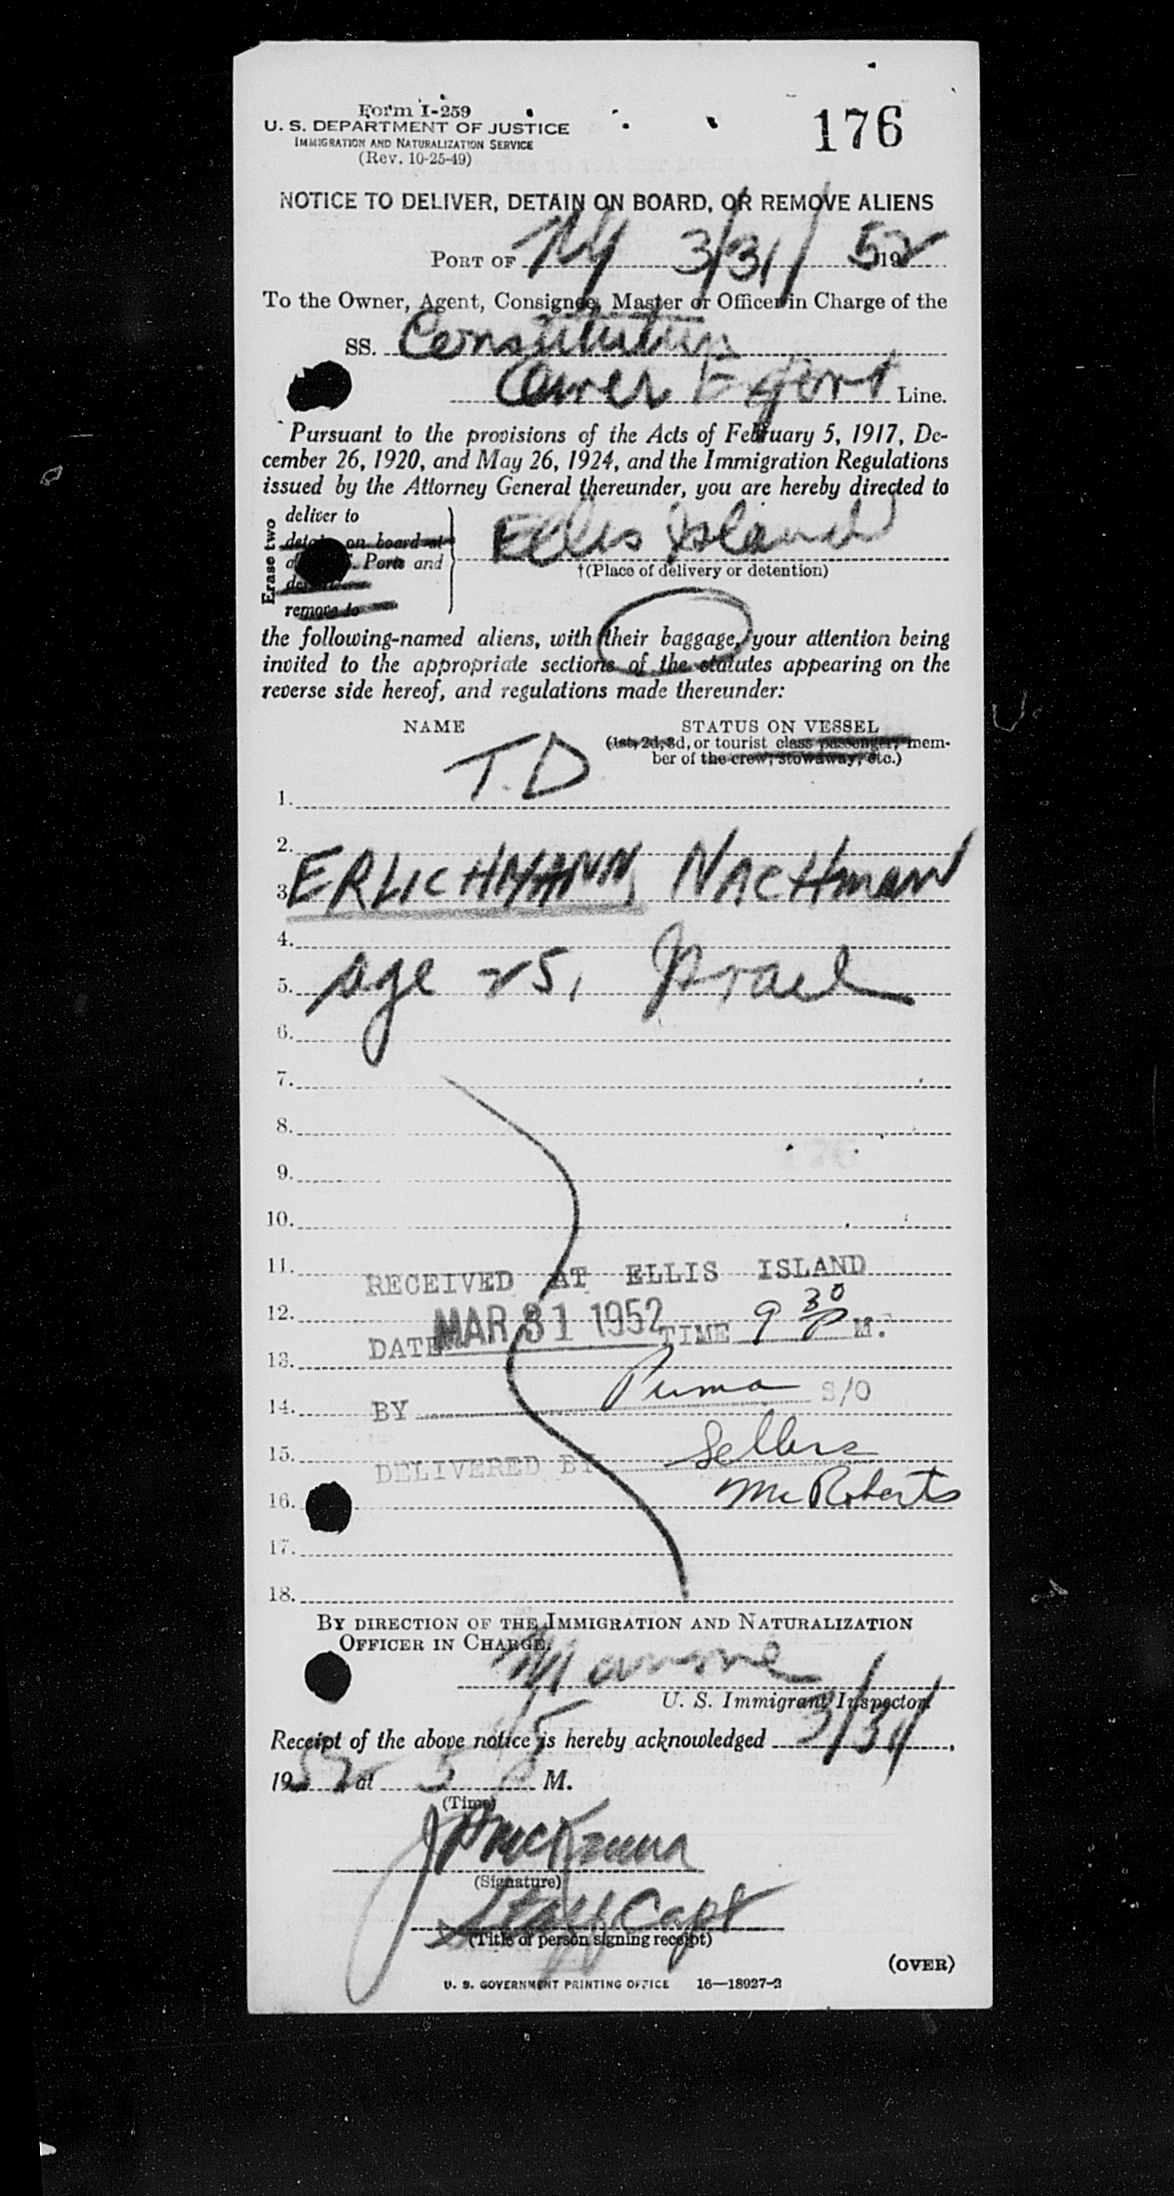 Form I-259
U. S. DEPARTMENT OF JUSTICE
IMMIGRATION AND NATURALIZATION SERVICE
(Rev. 10-25-49)
176
NOTICE TO DELIVER, DETAIN ON BOARD, OR REMOVE ALIENS
PORT OF NY 3/31/ 1952
To the Owner, Agent, Consignee, Master or Officer in Charge of the
SS. Constitution
Amer Export Line.
Pursuant to the provisions of the Acts of February 5, 1917, De-
cember 26, 1920, and May 26, 1924, and the Immigration Regulations
issued by the Attorney General thereunder, you are hereby directed to
Erase two
deliver to
detain on board at
Ports and
remove to
Ellis Island
†(Place of delivery or detention)
the following-named aliens, with their baggage, your attention being
invited to the appropriate sections of the statutes appearing on the
reverse side hereof, and regulations made thereunder:
NAME STATUS ON VESSEL
(1st, 2d, 3d, or tourist class passenger, mem-
ber of the crew, stowaway, etc.)
T.D
1.
2.
3. ERLICHMANN, NACHMAN
4.
5. age 25, Israel
6.
7.
8.
9.
10.
11.
RECEIVED AT ELLIS ISLAND
12.
DATE MAR 31 1952 TIME 9 30 P M.
13.
14.
BY Puma S/O
15.
DELIVERED BY Sellers
16. McRoberts
17.
18.
BY DIRECTION OF THE IMMIGRATION AND NATURALIZATION
OFFICER IN CHARGE.
U. S. Immigrant Inspector.
Receipt of the above notice is hereby acknowledged 3/31/,
1952 at 5 M.
(Time)
(Signature)
Staff Capt
(Title of person signing receipt)
(OVER)
U. S. GOVERNMENT PRINTING OFFICE 16—18927-2